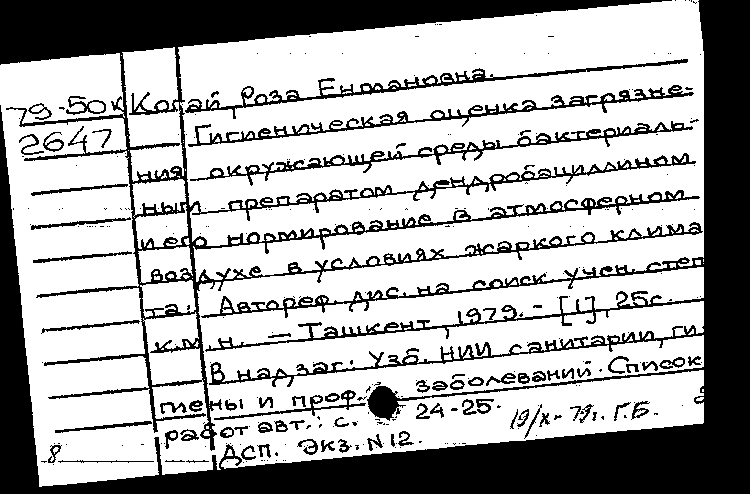 79-50к Когай, Роза Енмановна.
2647 Гигиеническая оценка загрязне-
ния окружающей среды бактериаль-
ным препаратом дендробациллином
и его нормирование в атмосферном
воздухе в условиях жаркого клима
та: Автореф. дис. на соиск. учен. степ
к.м.н. – Ташкент, 1979. – [1], 25с.
В надзаг.: Узб. НИИ санитарии, ги-
гиены и проф. заболеваний. Список
работ авт.: с. 24-25.
19/X-79г. Г.Б.
8 ДСП. Экз. N 12.